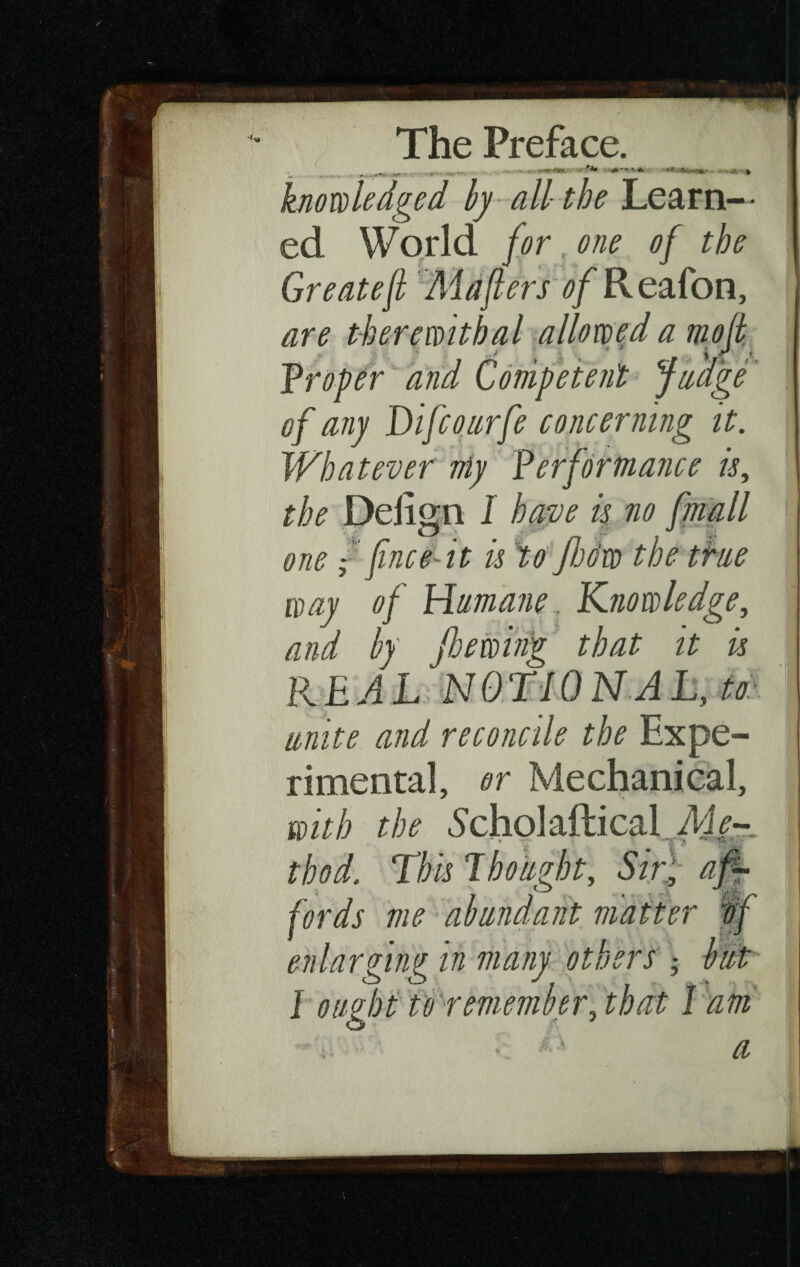 The Preface.
knowledged by all the Learn-
ed World for one of the
Greateſt Maſters of Reaſon,
are therewithal allowed a moſt
Proper and Competent Judge
of any Diſcourſe concerning it.
Whatever my Performance is,
the Deſign I have is no ſmall
one; ſince it is to ſhow the true
way of Humane Knowledge,
and by ſhewing that it is
REAL NOTIONAL, to
unite and reconcile the Expe-
rimental, or Mechanical,
with the Scholaſtical Me-
thod. This Thought, Sir, af-
fords me abundant matter of
enlarging in many others; but
I ought to remember, that I am
a